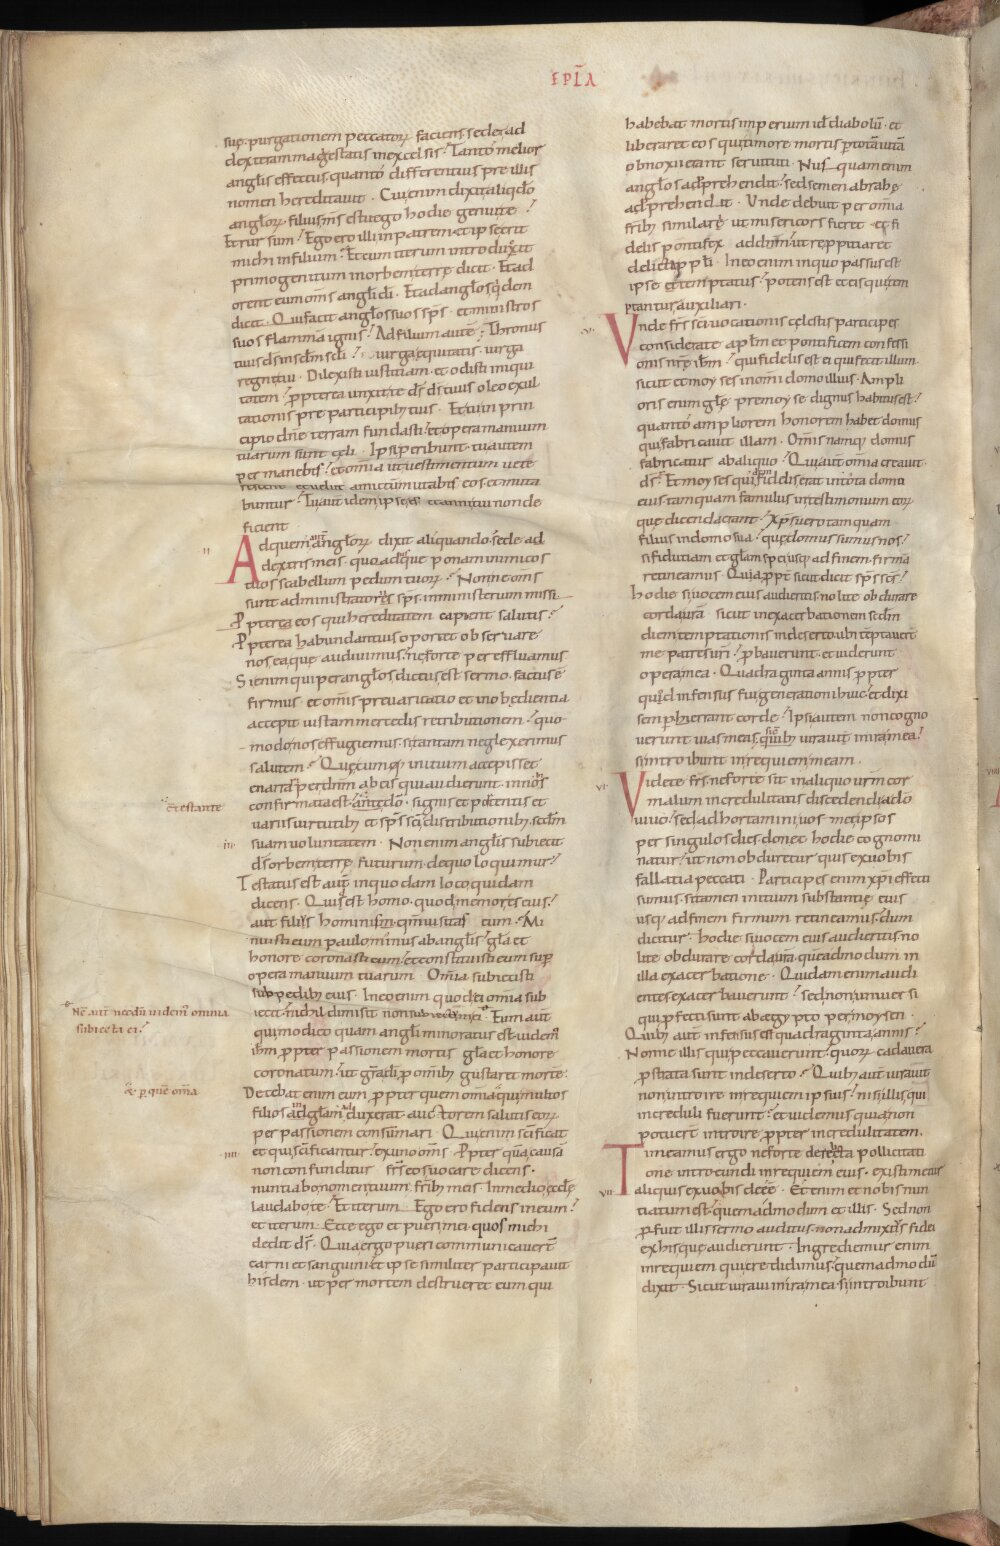 EPĪLA
suę. purgationem peccatoꝝ faciens. sedet ad
dexteram magestatis in excelsis? Tantó melior
angl̄is effectus. quantó differentius pre illis
nomen hereditauit. Cui enim dixit aliqn̄do
angl̄oꝝ. filius m̄s es tu ego hodie genui te?
Et rursum? Ego ero illi in patrem. et ipse erit
michi in filium? Et cum iterum introduxerit
primogenitum in orbem terrę dicit. Et ad
orent eum om̄s angl̄i dī. Et ad angl̄os q̇dem
dicit. Qui facit angl̄os suos sp̄s. et ministros
suos flammā ignis? Ad filium autē; Thronus
tuus d̄s in sc̄lm sc̄li? uirga equitatis. uirga
regni tui. Dilexisti iustitiam. et odisti iniqui
tatem? ꝓpterea unxit te d̄s d̄s tuus oleo exul
tationis pre participibꝫ tuis. Et tu in prin
cipio dn̄e terram fundasti? et opera manuum
tuarum sunt cęli. Ipsi peribunt. tu autem
permanebis? et om̄ia ut uestimentum uete
rescent et uelut amictum mutabis eos. et muta
buntur? Tu aut̄ idem ipse es. et anni tui non de
ficient.
II A d quem aūt angl̄oꝝ dixit aliquando. sede ad
dextris meis. quo adusque ponam inimicos
tuos scabellum pedum tuoꝝ? Nonne om̄s
sunt administratores sp̄s. in ministerum missi
ꝓpterea eos qui hereditatem capient salutis?
ꝓpterea habundantius oportet obseruare
nos ea que audiuimus. ne forte pereffluamus
Si enim qui per angl̄os dictus est sermo. factus ē
firmus. et om̄is preuaricatio et inobędientia
accepit iustam mercedis retributionem? quo
modo nos effugiemus. si tantam neglexerimus
salutem? Quę cum initium accepisset
enarrari per dn̄m ab eis qui audierunt. in nos
c̄testante
confirmata est ... dō. signis et portentis et
uariis uirtutibꝫ et sp̄s sc̄i distributionibꝫ. sc̄dm
III suam uoluntatem. Non enim angl̄is subiecit
d̄s orbem terrę futurum. de quo loquimur?
Testatus est aut̄ in quodam loco quidam
dicens. Quis est homo. quod memor es eius?
aut filius hominis. qm̄ uisitas eum. Mi
nuisti eum paulominus ab angl̄is? gl̄a et
honore coronasti eum. et constituisti eum sup̄
opera manuum tuarum. Om̄ia subiecisti
sub pedibꝫ eius. In eo enim quod ei om̄ia sub
Nc̄ aut̄ necdū uidem᷒ omnia
subiecta ei?
iecit. nichil dimisit non subiectum ei. Eum aut̄
qui modico quam angl̄i minoratus est. uidem᷒
ih̄m ꝓpter passionem mortis gl̄a et honore
coronatum? ut gr̄a dī ꝓ om̄ibꝫ gustaret mortē.
Decebat enim eum ꝓpter quem om̄ia
& ꝑ quē om̄a
qui multos
filios ad gl̄am adduxerat. auctorem salutis eoꝝ.
per passionem consūmari. Qui enim sc̄ificat
IIII et qui sc̄ificantur? ex uno om̄s. ꝓpter quā causā
non confunditur fr̄s eos uocare dicens.
nuntiabo nomen tuum. fr̄ibꝫ meis. In medio ęcclę
laudabo te. Et iterum. Ego ero fidens in eum?
et iterum. Ecce ego et pueri mei quos michi
dedit d̄s. Quia ergo pueri communicauerť
carni et sanguini. et ipse similiter participauit
hisdem. ut per mortem destrueret eum qui
habebat mortis imperium id ē diabolū. et
liberaret eos qui timore mortis ꝑ totā uitā
obnoxii erant seruituti. Nusquam enim
angl̄os adprehendit? sed semen abrahę
adprehendit. Unde debuit per om̄ia
fr̄ibꝫ similare ut misericors fieret et fi
delis pontifex ad dn̄m. ut repropitiaret
delicta ppl̄i. In eo enim in quo passus est
ipse et temptatus? potens est et eis qui tem
ptantur auxiliari.
V U nde fr̄s sc̄i uocationis cęlestis participes
considerate apl̄m et pontificem confessi
onis nr̄ę ih̄m? qui fidelis est ei qui fecit illum.
sicut et moyses in om̄i domo illius. Ampli
oris enim gl̄ę pre moyse dignus habitus est?
quantó ampliorem honorem habet domus
qui fabricauit illam. Om̄is namqꝫ domus
fabricatur ab aliquo? Qui aut̄ om̄ia creauit.
d̄s. Et moyses quidem fidelis erat in tota domo
eius. tamquam famulus in testimonium eoꝝ
que dicenda erant? xp̄s uero tamquam
filius in domo sua? quę domus sumus nos?
si fiduciam et gl̄am spei usqꝫ ad finem firmā
retineamus. Quia ꝓpt̄ sicut dicit sp̄s sc̄s?
hodie si uocem eius audieritis. nolite obdurare
corda ur̄a. sicut in exacerbationem sc̄dm
diem temptationis in deserto. ubi tēptauer̄t
me patres ur̄i? ꝓbauerunt. et uiderunt
opera mea. Quadraginta annis ꝓpter
quod infensus fui generationi huic. et dixi
semꝑ hi errant corde? Ipsi autem non cogno
uerunt uias meas. quibꝫ iuraui in ira mea?
si introibunt in requiem meam.
VI U idete fr̄s. ne forte sit in aliquo ur̄m cor
malum incredulitatis discedendi a dō
uiuo? sed adhortamini uos met ipsos
per singulos dies. donec hodie cognomi
natur? ut non obduretur quis ex uobis
fallatia peccati. Participes enim xp̄i effecti
sumus. si tamen initium substantię eius
usqꝫ ad finem firmum retineamus. dum
dicitur. hodie si uocem eius audieritis. no
lite obdurare corda ur̄a. quemadmodum in
illa exacerbatione. Quidam enim audi
entes exacerbauerunt? sed non uniuersi
qui ꝓfecti sunt ab ęgypto per moysen.
Quibꝫ aut̄ infensus est quadraginta annis?
Nonne illis qui peccauerunt? quoꝝ cadauera
ꝓstrata sunt in deserto? Quibꝫ aut̄ iurauit
non introire in requiem ipsius? nisi illis qui
increduli fuerunt? et uidemus quia non
potuerť introire ꝓpter incredulitatem.
VII T imeamus ergo ne forte derelicta pollicitati
one introeundi in requiem eius. existimetur
aliquis ex uobis deesse. Etenim et nobis nun
tiatum est. quemadmodum et illis. Sed non
ꝓfuit illis sermo auditus. non admixtus fidei
ex his que audierunt. Ingrediemur enim
in requiem qui credidimus. quemadmodū
dixit. Sicut iuraui in ira mea. si introibunt